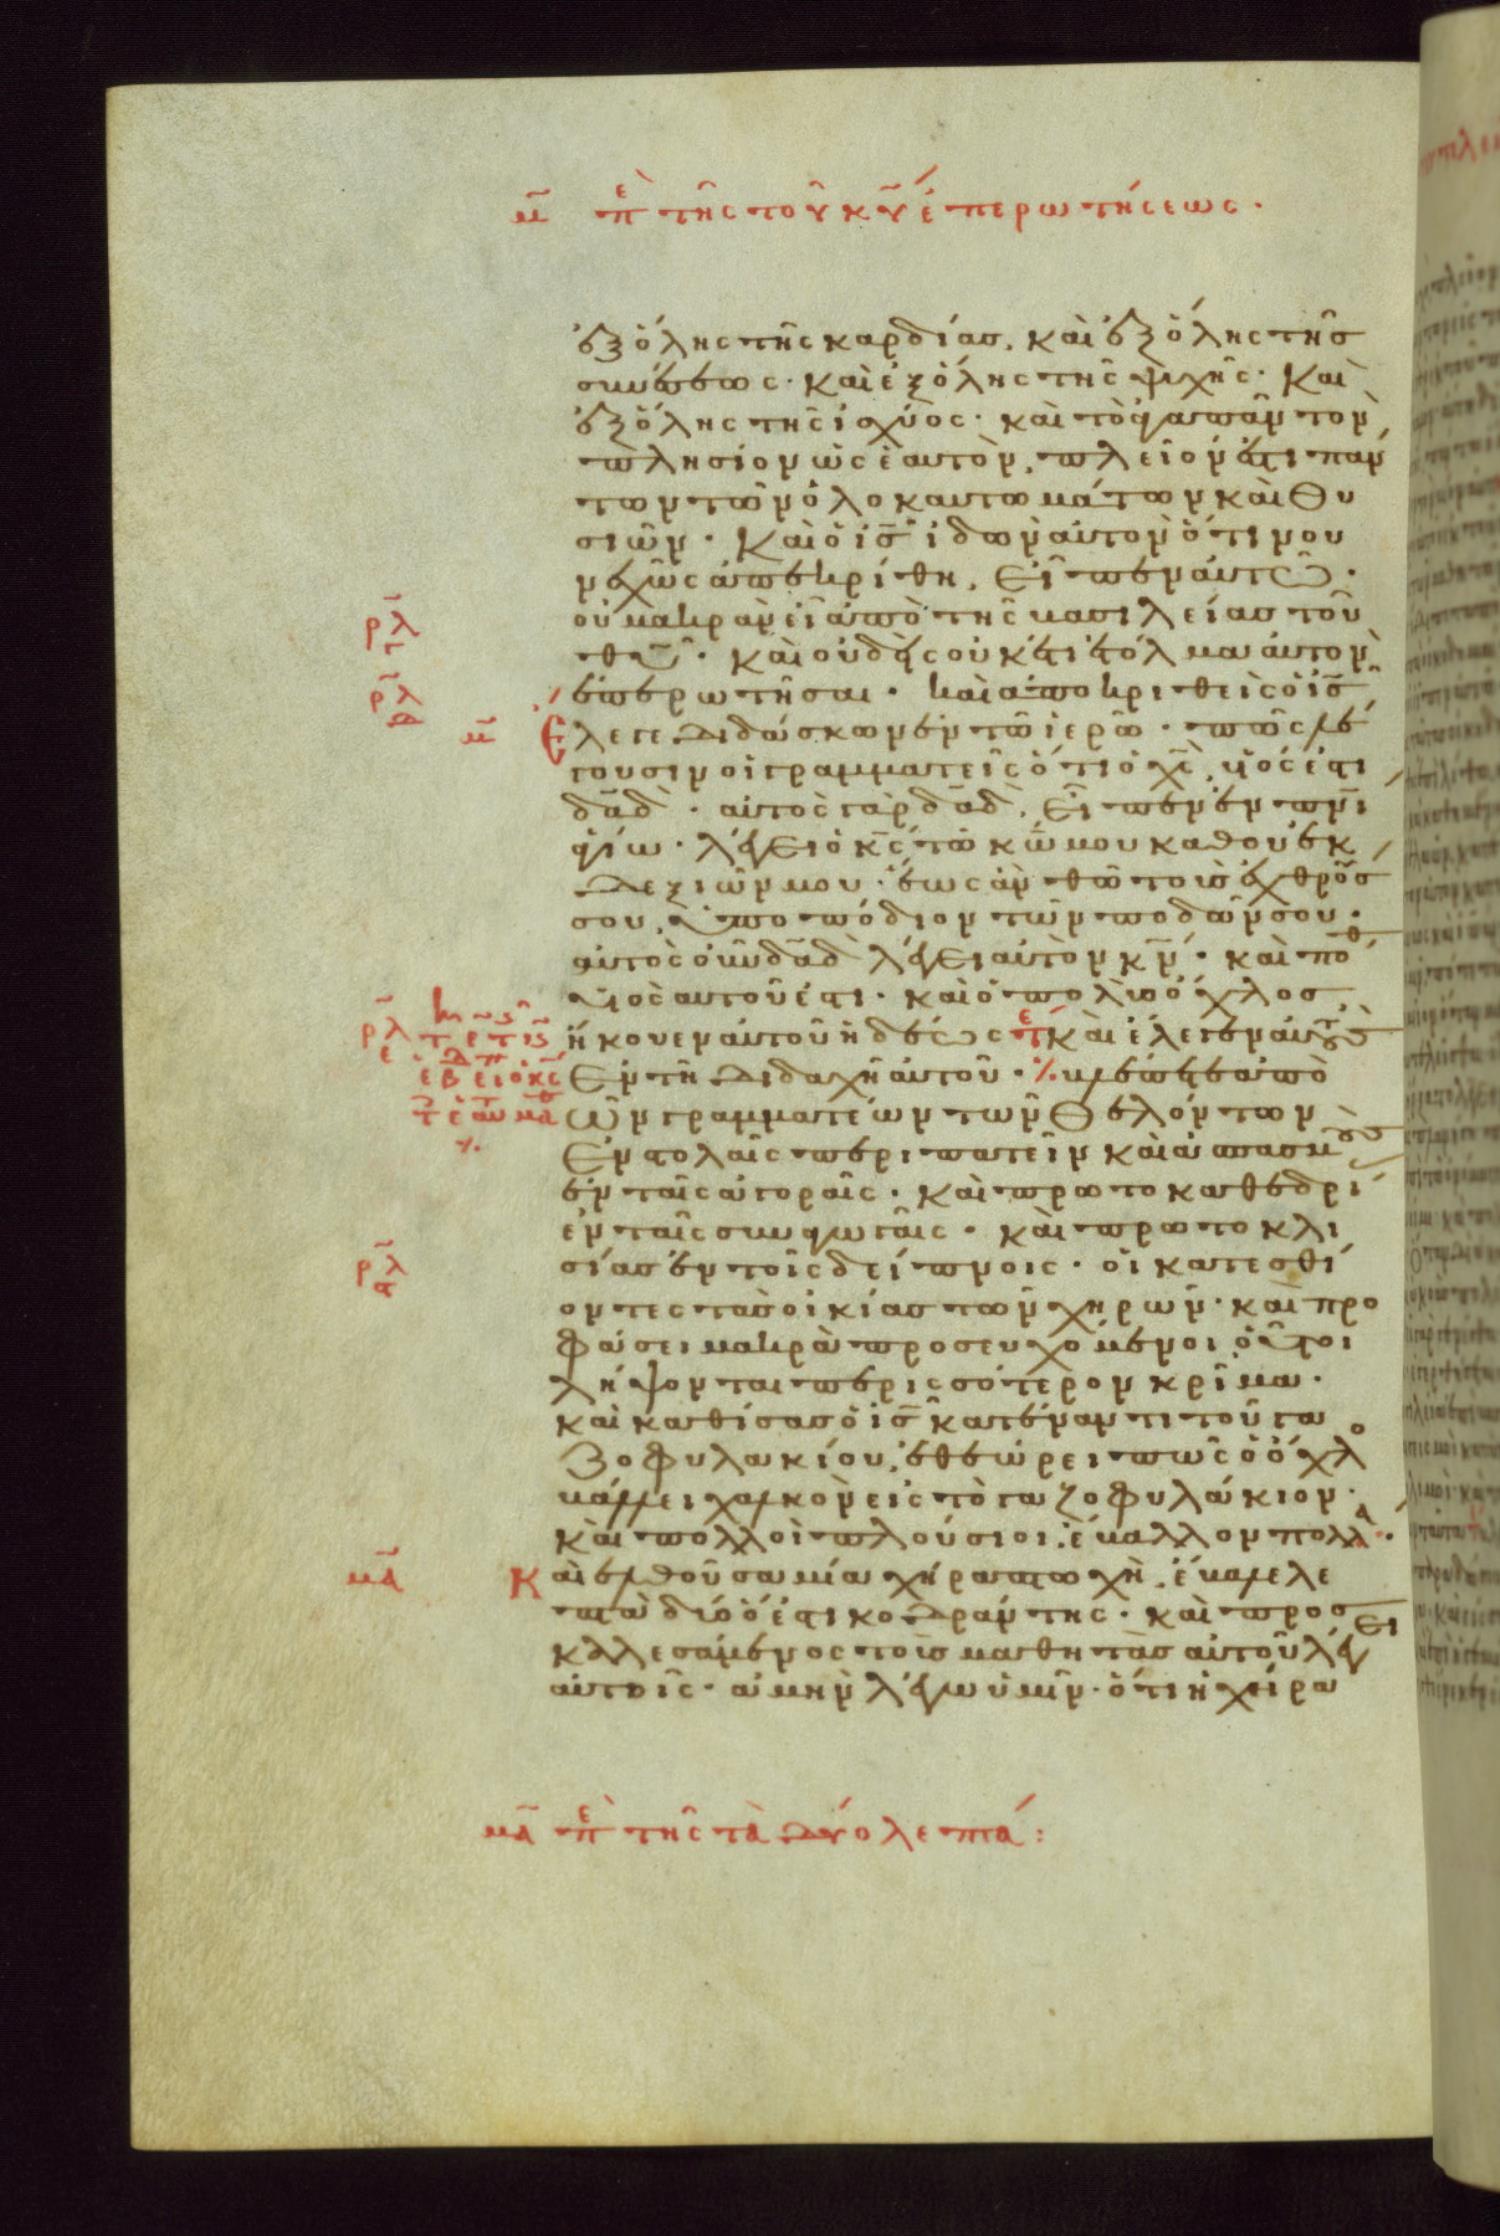 μ̅ πε τῆς τοῦ κυ̅ ἐπερωτήσεως.
ἐξ ὅλης τῆς καρδίας. καὶ ἐξ ὅλης τῆς
συνέσεως. καὶ ἐξ ὅλης τῆς ψυχῆς. καὶ
ἐξ ὅλης τῆς ἰσχύος. καὶ τὸ ἀγαπᾶν τὸν
πλησίον ὡς ἑαυτὸν, πλεῖόν ἐστι πάν
των τῶν ὁλοκαυτωμάτων καὶ θυ
σιῶν. Καὶ ὁ ις̅ ἰδὼν αὐτὸν ὅτι νου
νεχῶς ἀπεκρίθη, εἶπεν αὐτῶ.
οὐ μακρὰν εἶ ἀπὸ τῆς βασιλείας τοῦ
ρλ̅γ
θυ̅. καὶ οὐδεὶς οὐκέτι ἐτόλμα αὐτὸν
ρλ̅δ
ἐπερωτῆσαι. καὶ ἀποκριθεὶς ὁ ις̅
μ̅ ἔλεγε διδάσκων ἐν τῶ ἱερῶ. πῶς λέ
γουσιν οἱ γραμματεῖς ὅτι ὁ χς̅, υἱός ἐστι
δα̅δ. αὐτὸς γὰρ δα̅δ, εἶπεν ἐν πν̅ι
ἁγίω. λέγει ὁ κς̅ τῶ κω̅ μου κάθου ἐκ
δεξιῶν μου. ἕως ἂν θῶ τοὺς ἐχθρούς
σου, ὑποπόδιον τῶν ποδῶν σου.
αὐτὸς οὖν δα̅δ λέγει αὐτὸν κν̅. καὶ πόθ
υἱὸς αὐτοῦ ἐστι. καὶ ὁ πολὺς ὄχλος
ρλ̅ε
ἤκουεν αὐτοῦ ἡδέως τε καὶ ἔλεγεν αὐτοῖς
ἐν τῆ διδαχῆ αὐτοῦ. βλέπετε ἀπὸ
τῶν γραμματέων τῶν θελόντων
ἐν στολαῖς περιπατεῖν καὶ ἀσπασμοὺς
ἐν ταῖς ἀγοραῖς. καὶ πρωτοκαθεδρί
ἐν ταῖς συναγωγαῖς. καὶ πρωτοκλι
ρλ̅ς
σίας ἐν τοῖς δείπνοις. οἱ κατεσθί
οντες τὰς οἰκίας τῶν χηρῶν. καὶ προ
φάσει μακρὰ προσευχόμενοι, οὗτοι
λήψονται περισσότερον κρίμα.
καὶ καθίσας ὁ ις̅ κατέναντι τοῦ γα
ζοφυλακίου, ἐθεώρει πῶς ὁ ὄχλο
βάλλει χαλκὸν εἰς τὸ γαζοφυλάκιον.
καὶ πολλοὶ πλούσιοι, ἔβαλλον πολλά.
μα̅ Καὶ ἐλθοῦσα μία χήρα πτωχὴ, ἔβαλε λε
πτὰ δύο ὅ ἐστι κοδράντης. καὶ προς
καλεσάμενος τοὺς μαθητὰς αὐτοῦ λέγει
αὐτοῖς. ἀμὴν λέγω ὑμῖν. ὅτι ἡ χήρα
μα̅ πε τῆς τὰ δύο λεπτά: